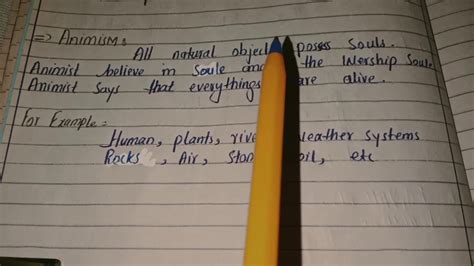 => Animism:
All natural object poses Souls.
Animist believe in Soule and the Worship Soule
Animist Says that everythings are alive.
For Example:
Human, plants, rive eather Systems
Rocks, Air, Ston oil, etc